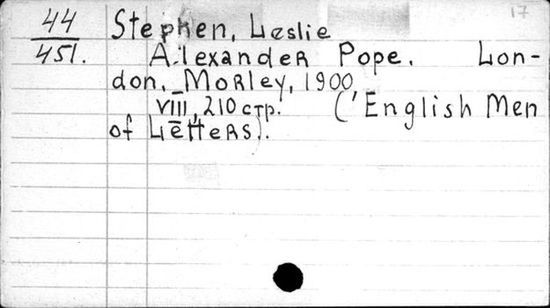 44 Stephen, Leslie 17
451. Alexander Pope. Lon-
don, Morley, 1900
VIII, 210 стр. ('English Men
of Letters).